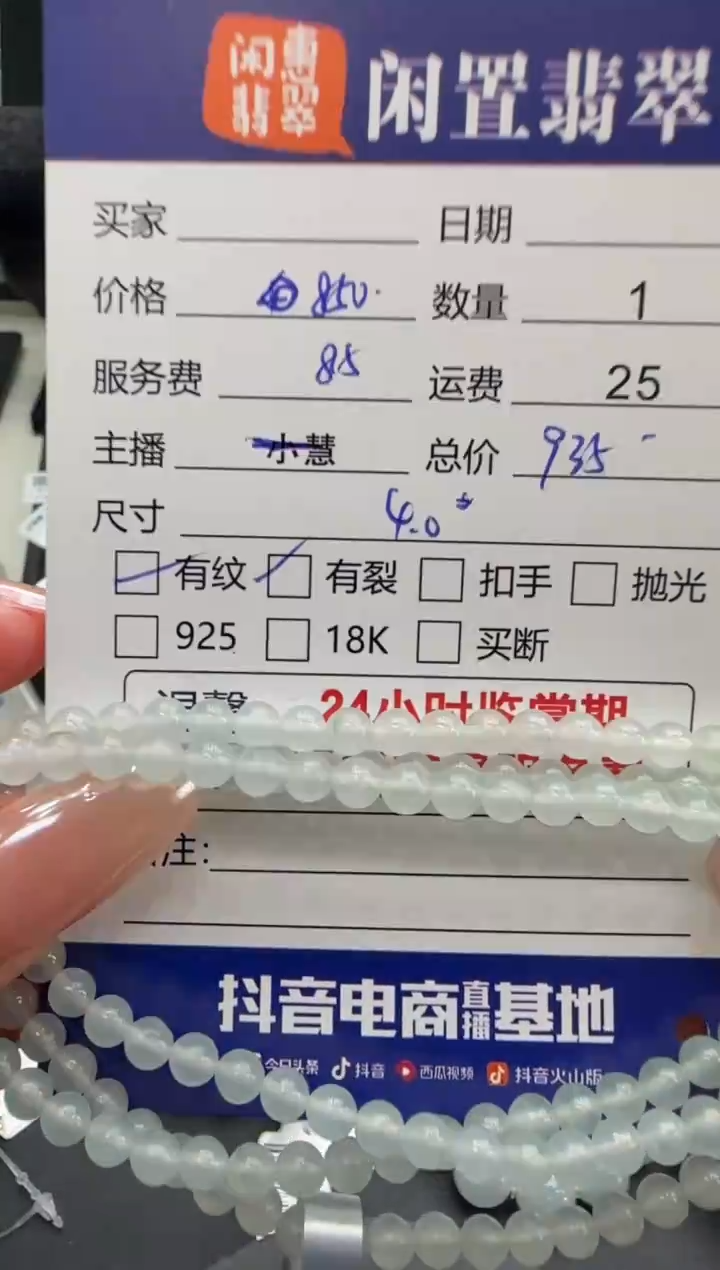 闲惠翡翠
闲置翡翠
买家 日期
价格 850. 数量 1
服务费 85 运费 25
主播 小慧 总价 935
尺寸 4.0+
有纹 有裂 扣手 抛光
925 18K 买断
24小时鉴赏期
注:
抖音电商直播基地
今日头条 抖音 西瓜视频 抖音火山版